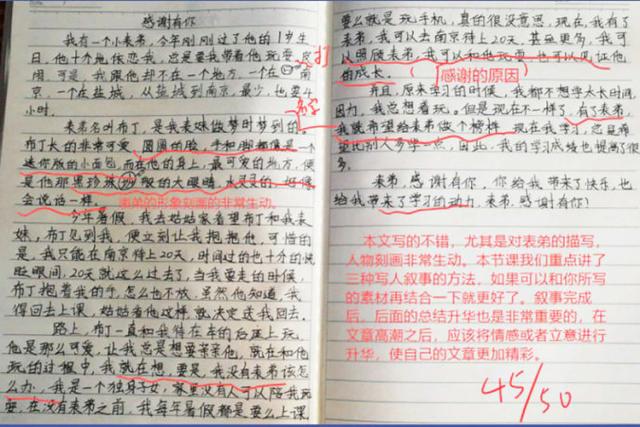 感谢有你
我有一个小表弟，今年刚刚过了他的1岁生
日，他十分地依恋我，总是要我带着他玩耍
闹，可是，我跟他却不在一个地方，一个在
南
京，一个在盐城，从盐城到南京，最少，也要4
小时。
表弟名叫布丁，是我表妹做梦时梦到的
布丁长的非常可爱，圆圆的脸，手和脚都像是一个
迷你版的小面包，而在他的身上，最可爱的地方，便
是他那黑珍珠般的大眼睛，水灵灵的，好像
会说话一样。
表弟的形象刻画的非常生动。
今年暑假，我去姑姑家看望布丁和我表
妹，布丁见到我，便立刻让我抱抱他，可惜的
是，我只能在南京待上20天，时间过的也十分的快
眨眼间，20天就这么过去了，当我要走的时候，
布丁抱着我的手，怎么也不放，虽然他知道，我
得回去上课，姑姑看他这样，就决定送我回去。
路上，布丁一直和我伴在车的后座上玩，
他是那么可爱，让我总是想要亲亲他，就在和他
玩的过程中，我就在想，要是，我没有表弟该怎
么办，我是一个独身子女，家里没有人可以陪我玩
耍，在没有表弟之前，我每年暑假都是要么上课
要么就是玩手机，真的很没意思，现在，我有了
表弟，我可以去南京待上20天，甚至更多，我可
以照顾表弟，我可以和他玩耍，也可以见证他
的成长。
感谢的原因
并且，原来学习的时候，我都不想学太长时间
因为，我总想着玩。但是现在不一样了，有了表弟，
我就希望给表弟做个榜样，现在我学习，总是希
望比别人多学一点，由此，我的学习成绩也提高了很
多。
表弟，感谢有你，你给我带来了快乐，也
给我带来了学习的动力，表弟，感谢有你！
本文写的不错，尤其是对表弟的描写，
人物刻画非常生动。本节课我们重点讲了
三种写人叙事的方法，如果可以和你所写
的素材再结合一下就更好了。叙事完成
后。后面的总结升华也是非常重要的，在
文章高潮之后，应该将情感或者立意进行
升华，使自己的文章更加精彩。
45/50